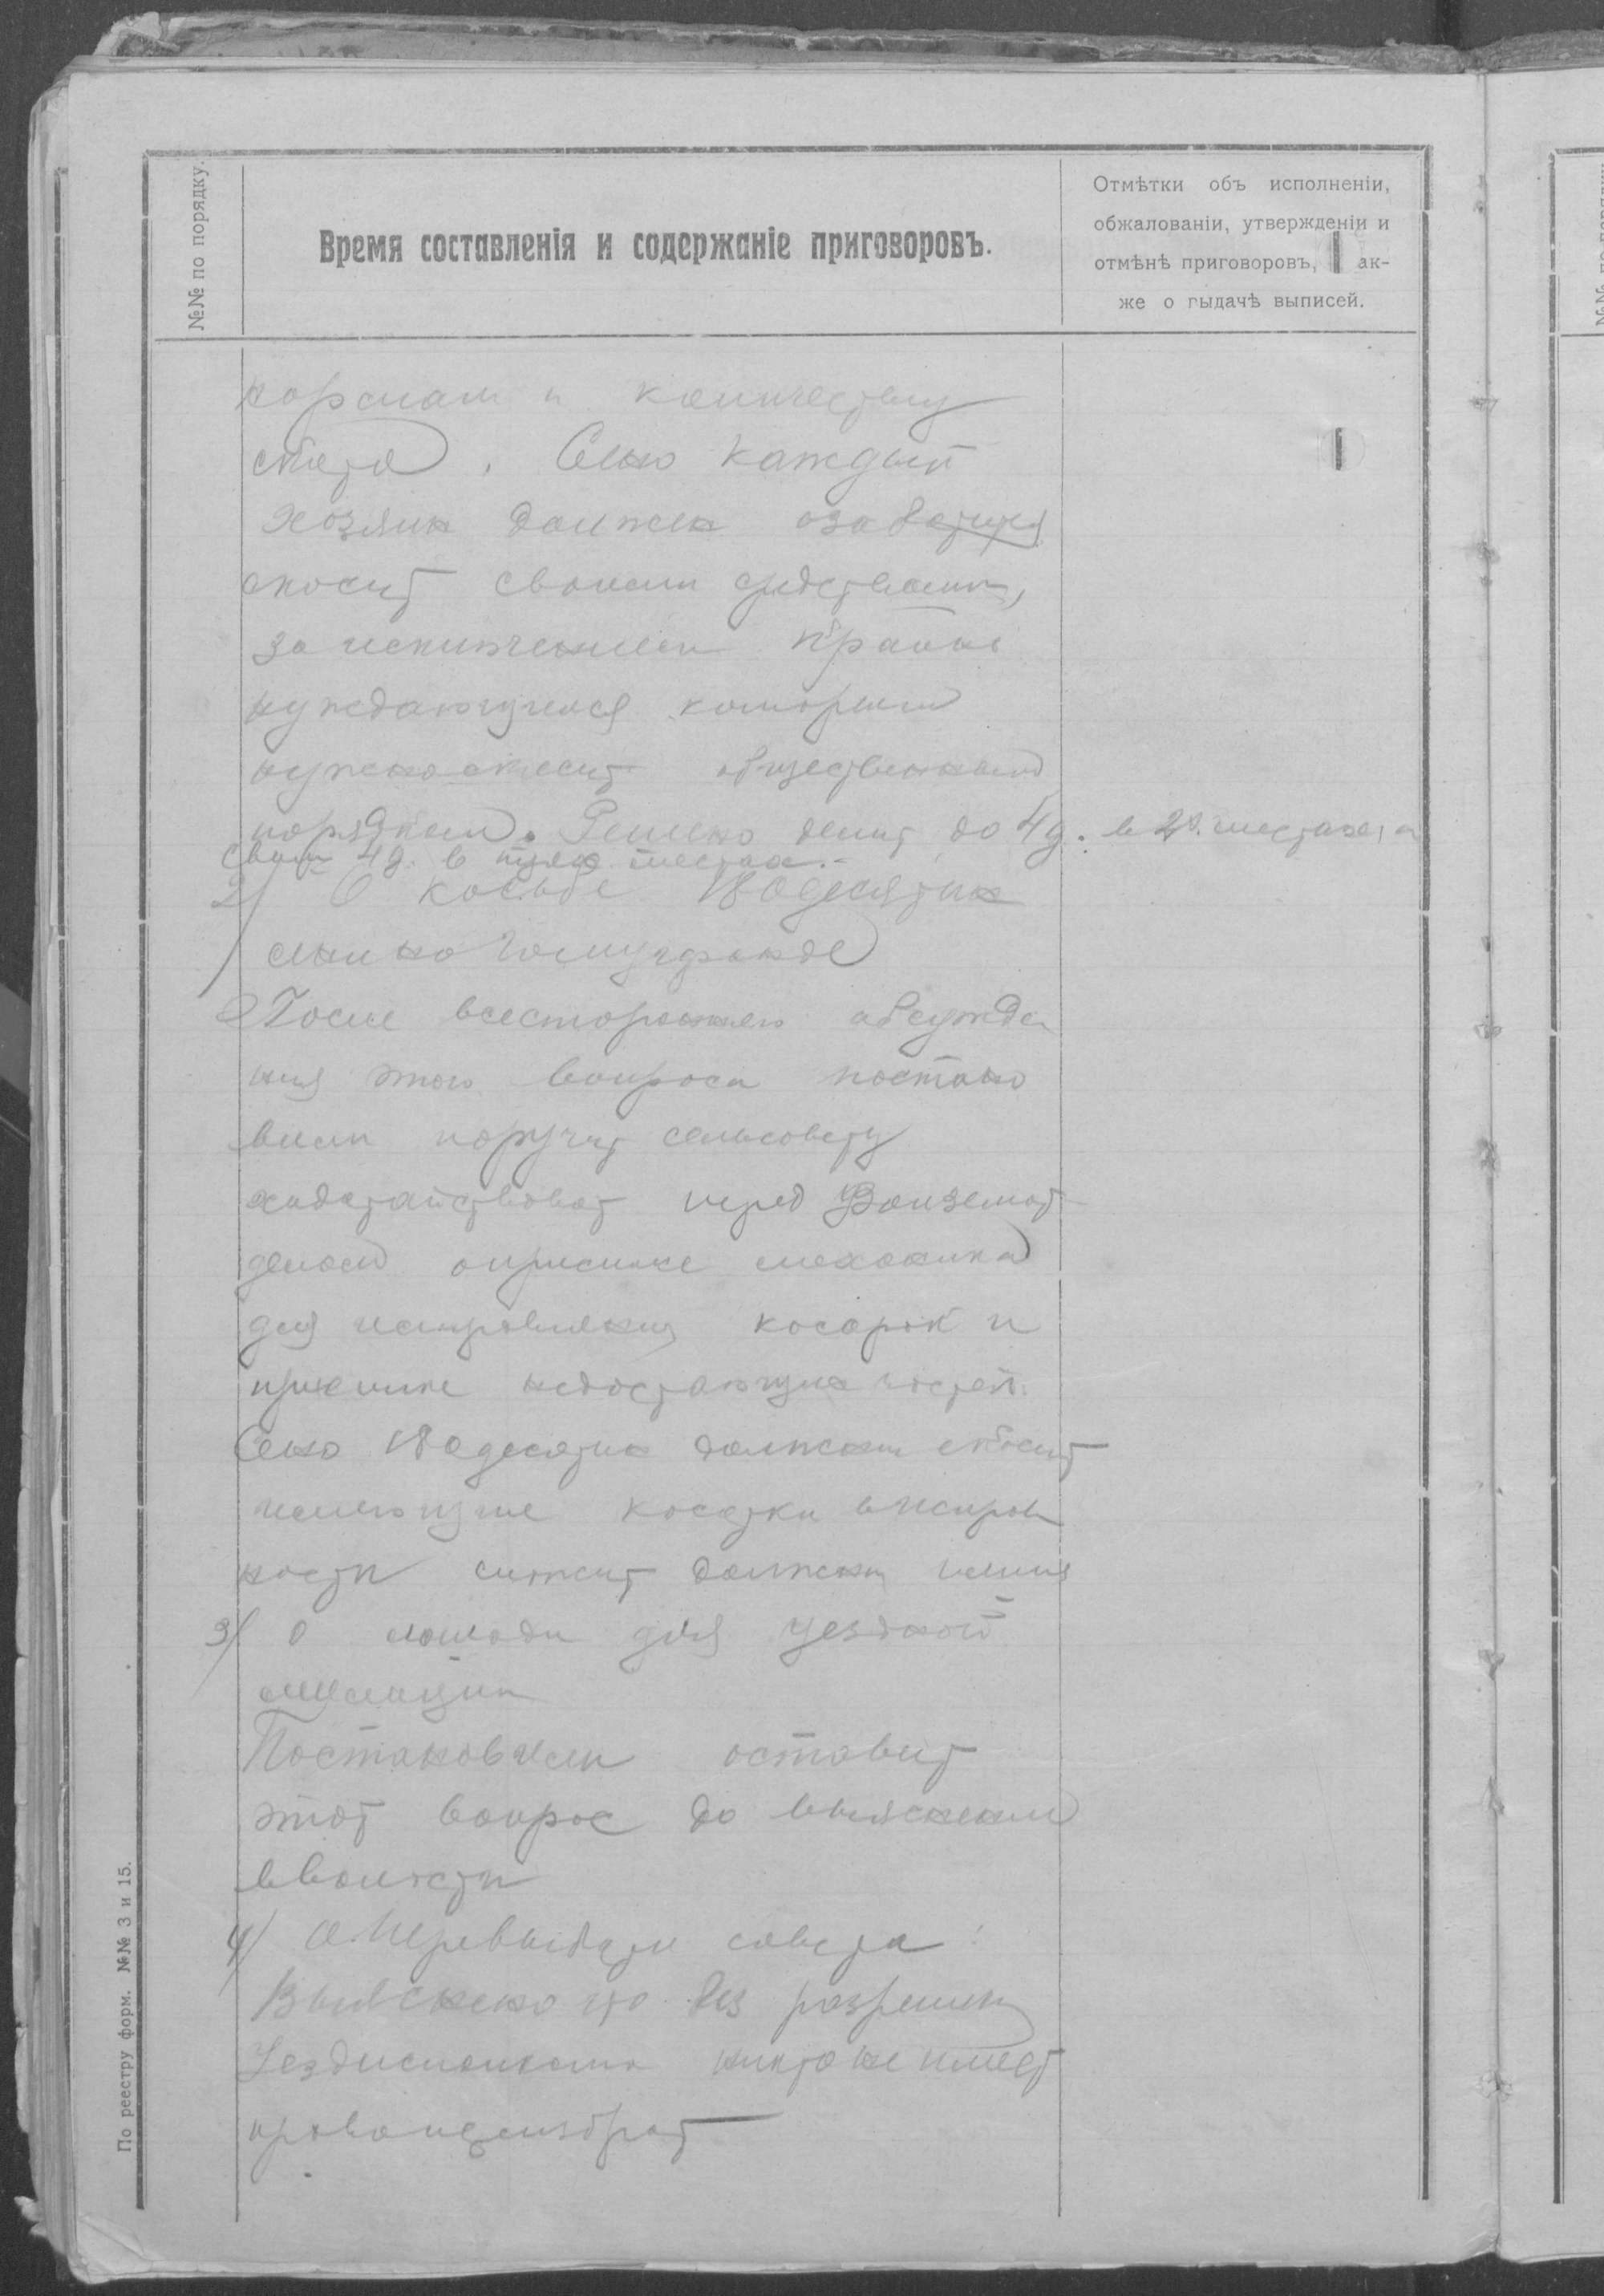 №№ по порядку.
Время составленія и содержаніе приговоровъ.
Отмѣтки объ исполненіи,
обжалованіи, утвержденіи и
отмѣнѣ приговоровъ, ак-
же о выдачѣ выписей.
нормам и количеству
скота. Сено каждый
хозяин должен
скосит своими средствами,
за исключением крайне
нуждающимся которым
нужно скосит общественным
порядком. Решено делит до 4 д. в 2х местах, а
свыше 4 д. в трех местах.
2/ О косьбе 180 десятин
сена
После всестороннего обсужде
ния этого вопроса постано
вили поручит сельсовету
ходатайствоват перед Волземот
делом о присылке механика
для исправления косарок и
присылке недостающих частей.
Сено 180 десятин должны скосит
имеющие косарки в исправ
ности должны
3/ О лошади для уездной
милиции
Постановили оставит
этот вопрос до выяснения
в волости
4/ О перевыборах совета:
Выяснено что без разрешения
Уездисполкома никто не имеет
право переизбрат
По реестру форм. №№ 3 и 15.